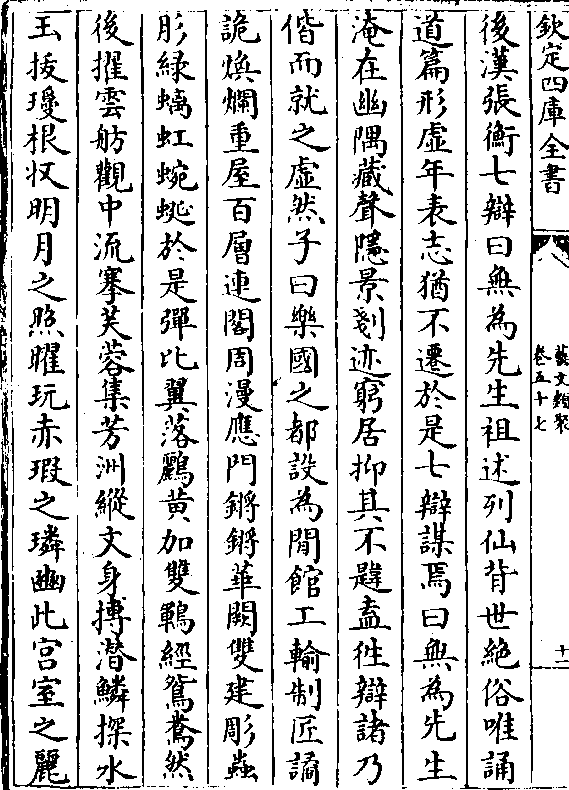 欽定四庫全書
藝文類聚
卷五十七
十二
後漢張衡七辯曰無為先生祖述列仙背世絶俗唯誦
道篇形虛年衰志猶不遷於是七辯謀焉曰無為先生
淹在幽隅藏聲隱景剗迹窮居抑其不韙盍往辯諸乃
偕而就之虛然子曰樂國之都設為閒館工輸制匠譎
詭煥爛重屋百層連閣周漫應門鏘鏘華闕雙建彫蟲
肜綠螭虹蜿蜒於是彈比翼落鸝黄加雙鶤經鴛鴦然
後擢雲舫觀中流搴芙蓉集芳洲縱文身搏潛鱗探水
玉拔瓊根收明月之照曜玩赤瑕之璘豳此宫室之麗